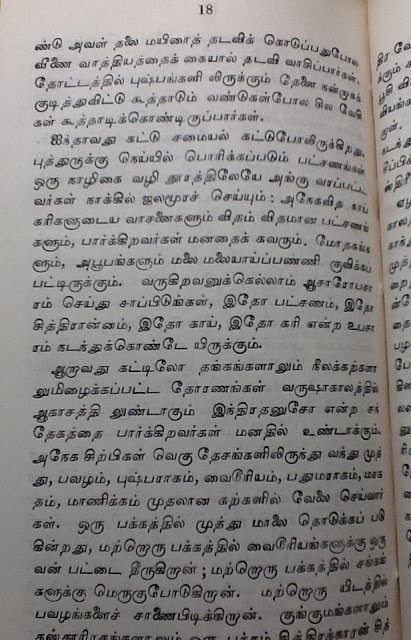 18
ண்டு அவள் தலை மயிரைத் தடவிக் கொடுப்பதுபோல
வீணை வாத்தியத்தைக் கையால் தடவி வாசிப்பார்கள்.
தோட்டத்தில் புஷ்பங்களி லிருக்கும் தேனை நன்றாகக்
குடித்துவிட்டு கூத்தாடும் வண்டுகள்போல சில வேசி
கள் கூத்தாடிக்கொண்டிருப்பார்கள்.
ஐந்தாவது கட்டு சமையல் கட்டுபோலிருக்கிறது.
புத்துருக்கு நெய்யில் பொரிக்கப்படும் பட்சணங்கள்
ஒரு நாழிகை வழி தூரத்திலேயே அங்கு வாப்பட்ட
வர்கள் நாக்கில் ஜலமூரச் செய்யும் : அநேகவித காய்
கரிகளுடைய வாசனைகளும் விதம் விதமான பட்சணங்
களும், பார்க்கிறவர்கள் மனதைக் கவரும். மோதகங்க
ளும், அபூபங்களும் மலை மலையாய்ப்பண்ணி குவிக்கப்
பட்டிருக்கும். வருகிறவனுக்கெல்லாம் ஆசாரோபசா
ரம் செய்து சாப்பிடுங்கள், இதோ பட்சணம், இதோ
சித்திரான்னம், இதோ காய், இதோ கரி என்ற உபசா
ரம் நடந்துகொண்டே யிருக்கும்.
ஆறாவது கட்டிலோ தங்கங்களாலும் நீலக்கற்களா
லுமிழைக்கப்பட்ட தோரணங்கள் வருஷாகாலத்தில்
ஆகாசத்தி லுண்டாகும் இந்திரதனுசோ என்ற சந்
தேகத்தை பார்க்கிறவர்கள் மனதில் உண்டாக்கும்.
அநேக சிற்பிகள் வெகு தேசங்களிலிருந்து வந்து முத்
து, பவழம், புஷ்பராகம், வைடூரியம், பதுமராகம், மரக
தம், மாணிக்கம் முதலான கற்களில் வேலை செய்வார்
கள். ஒரு பக்கத்தில் முத்து மாலை தொடுக்கப் படு
கின்றது, மற்றொரு பக்கத்தில் வைடூரியங்களுக்கு ஒரு
வன் பட்டை தீருகிறான் ; மற்றொரு பக்கத்தில் சங்கங்
களுக்கு மெருகுபோடுகிறான். மற்றொரு யிடத்தில்
பவழங்களைச் சாணைபிடிக்கிறான். குங்குமங்களாலும்